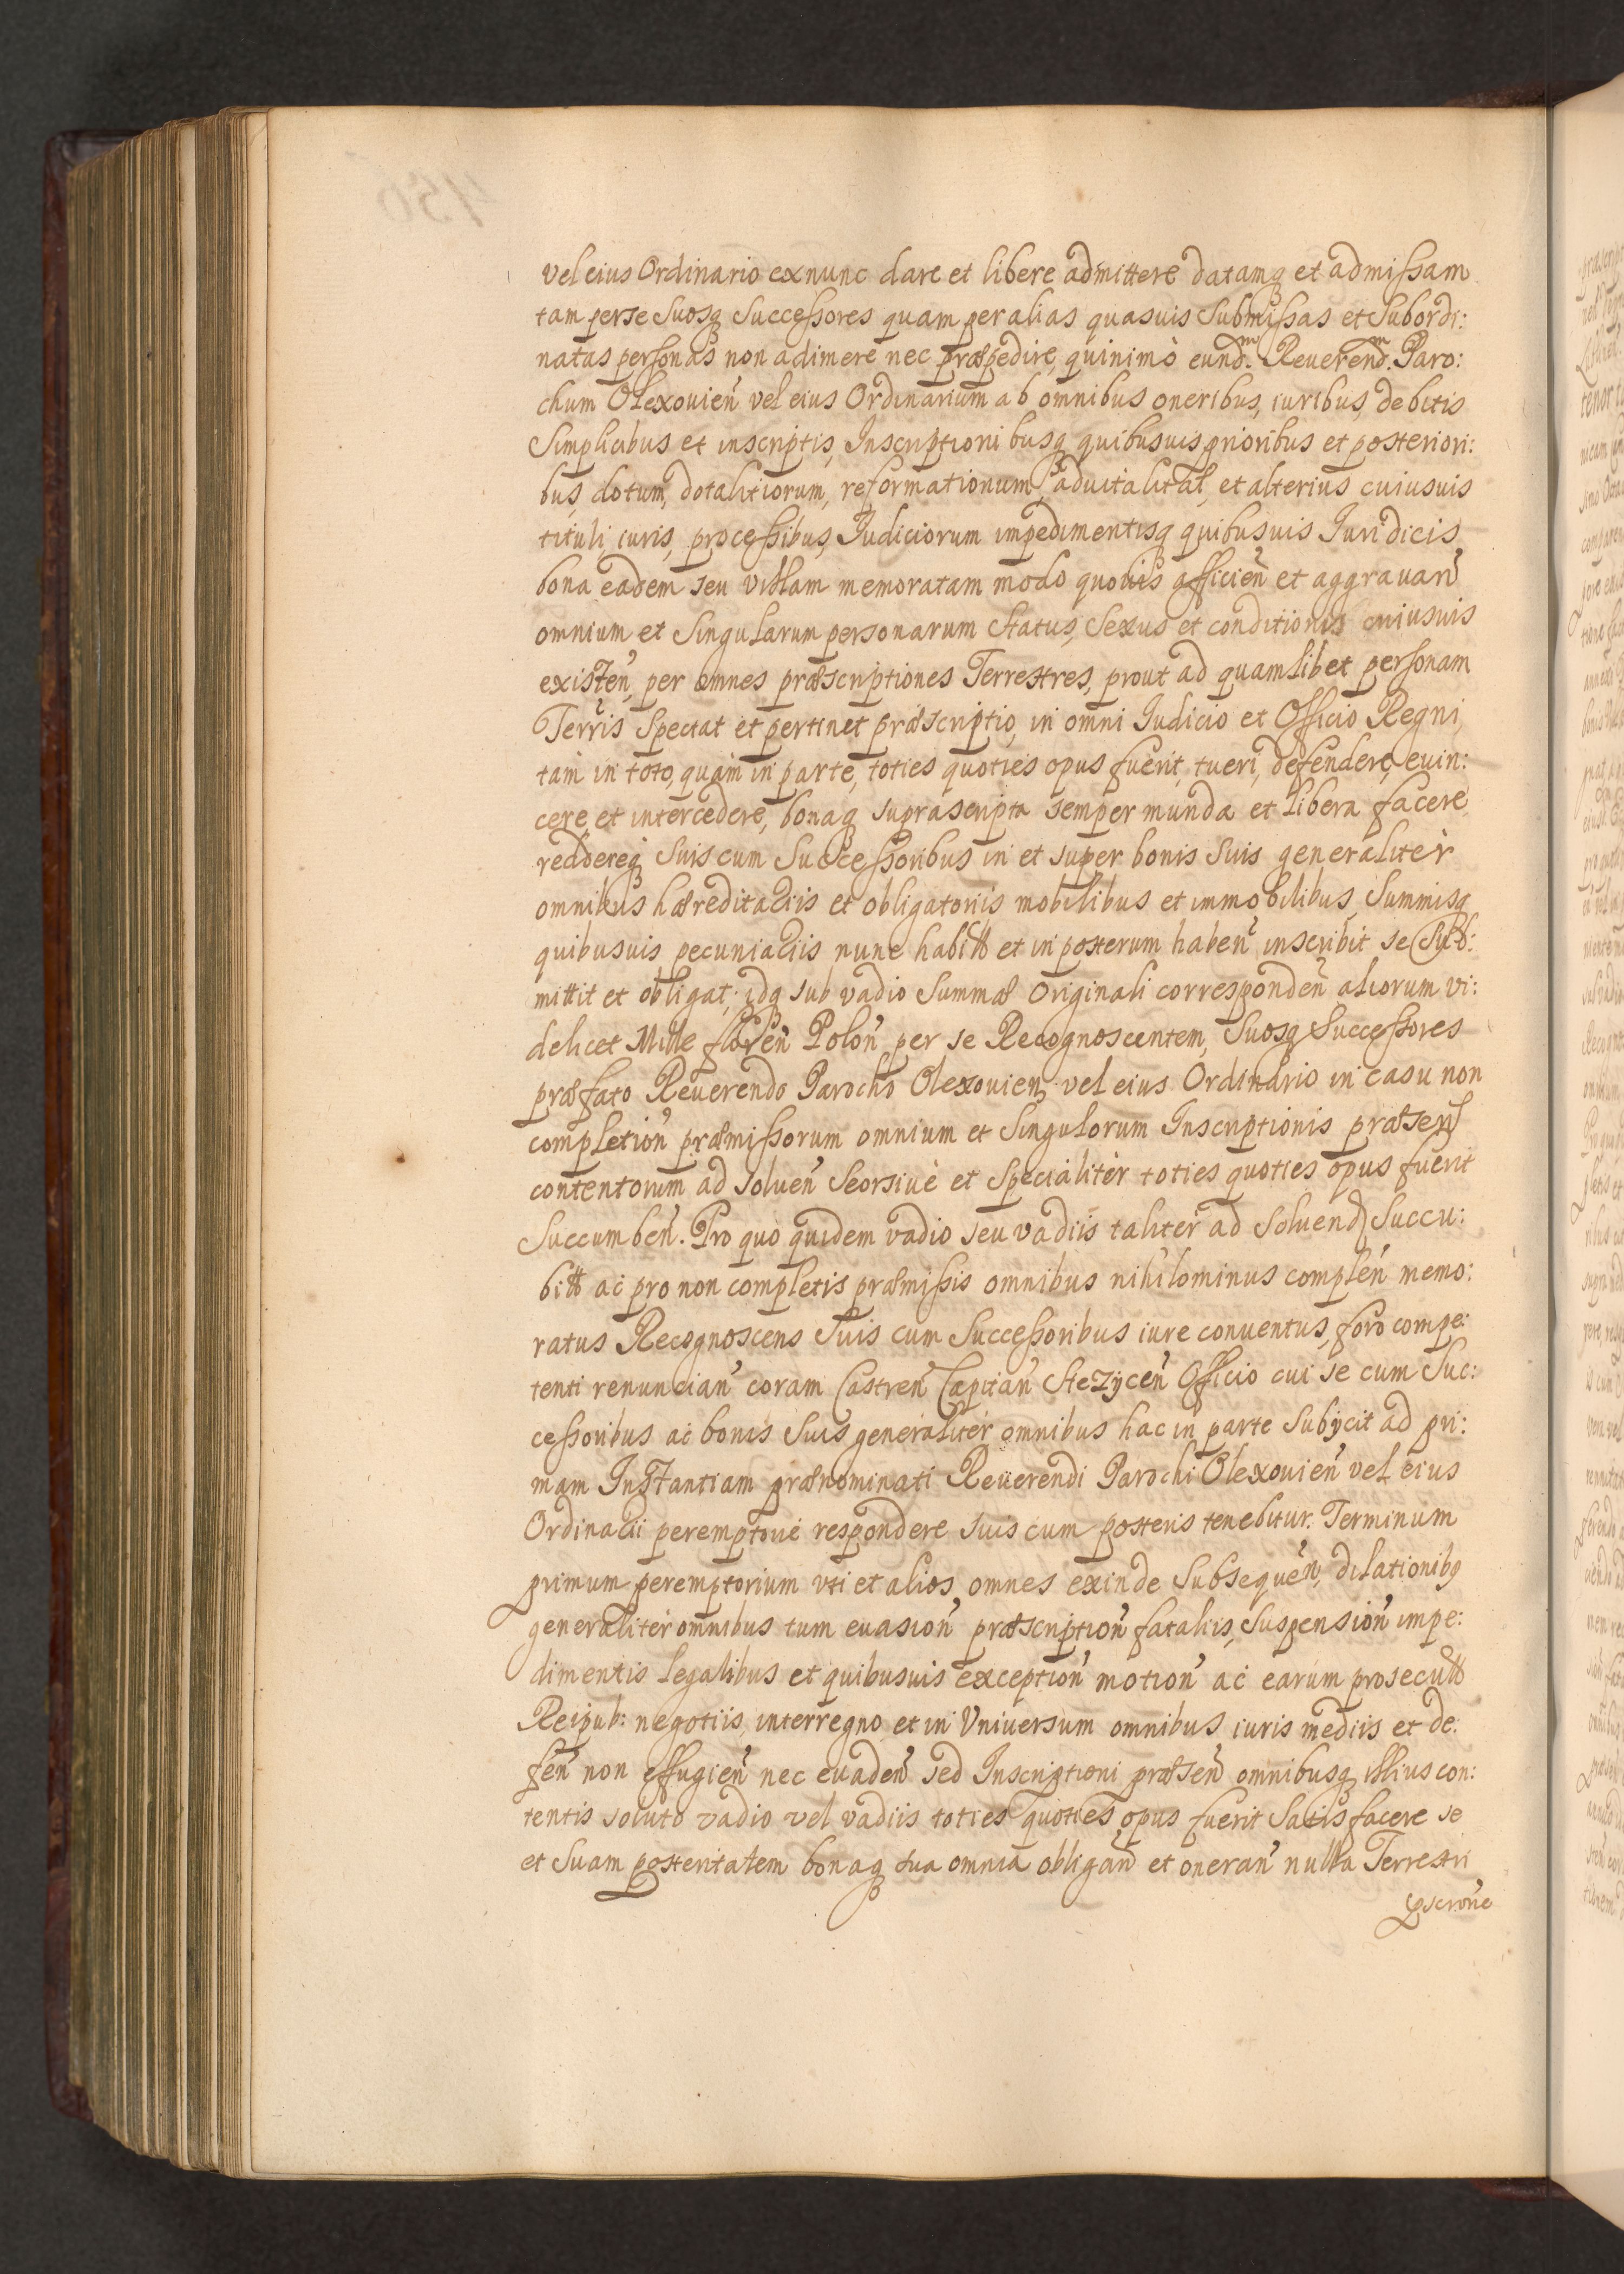 vel eius Ordinario exnunc dare et libere admittere datamq et admissam
tam per se Suosq Successores quam per alias quasuis Submissas et Subordi:
natas personas non adimere nec præpedire, quinimò eund.m Reuerend.m Paro:
chum Olexouien̄ vel eius Ordinarium ab omnibus oneribus, iuribus, debitis
Simplicibus et inscriptis, Inscriptionibusq quibusuis prioribus et posteriori:
bus, dotum, dotalitiorum, reformationum, aduitalitat, et alterius cuiusuis
tituli iuris, processibus, Iudiciorum impedimentisq quibusuis Iuridicis
bona eadem seu Villam memoratam modo quouis afficien̄ et aggrauan̄
omnium et Singularum personarum Status, Sexus et conditionis cuiusuis
existen̄, per omnes præscriptiones Terrestres, prout ad quamlibet personam
Terris Spectat et pertinet præscriptio, in omni Iudicio et Officio Regni,
tam in toto, quam in parte, toties quoties opus fuerit, tueri, defendere, euin:
cere, et intercedere, bonaq suprascripta semper munda et libera facere
reddereq suis cum Successoribus in et super bonis Suis generalitèr
omnibus hæreditariis et obligatoriis mobilibus et immobilibus, Summisq
quibusuis pecuniariis nunc habitt et in posterum haben̄ inscribit se Sub:
mittit et obligat, idq sub vadio Summæ Originali corresponden̄ aliorum vi:
delicet Mille floren̄ Polon̄ per se Recognoscentem, Suosq Successores
præfato Reuerendo Parocho Olexouien̄ vel eius Ordinario in casu non
completion̄ præmissorum omnium et Singulorum Inscriptionis præsen
contentorum ad soluen̄ Seorsiuè et Specialitèr toties quoties opus fuerit
Succumben̄. Pro quo quidem vadio seu vadiis taliter ad Soluend Succu:
bitt ac pro non completis præmissis omnibus nihilominus complen̄ memo:
ratus Recognoscens Suis cum Successoribus iure conuentus, foro compe:
tenti renuncian̄ coram Castren̄ Capitan̄ Stezÿcen̄ Officio cui se cum Suc:
cessoribus ac bonis Suis generaliter omnibus hac in parte Subÿcit ad pri:
mam Instantiam prænominati Reuerendi Parochi Olexouien̄ vel eius
Ordinarii peremptoriè respondere suis cum posteris tenebitur. Terminum
primum peremptorium vti et alios omnes exinde Subsequen̄, dilationibq
generaliter omnibus tum euasion̄ præscription̄ fataliis, Suspension̄ impe:
dimentis legalibus et quibusuis exception̄ motion̄ ac earum prosecutt
Reipub: negotiis interregno et in Vniuersum omnibus iuris mediis et de:
fen̄ non effugien̄ nec euaden̄ sed Inscriptioni præsen̄ omnibusq illius con:
tentis soluto vadio vel vadiis toties quoties opus fuerit Satisfacere se
et Suam posteritatem bonaq sua omnia obligan̄ et oneran̄ nulla Terrestri
pscrōne